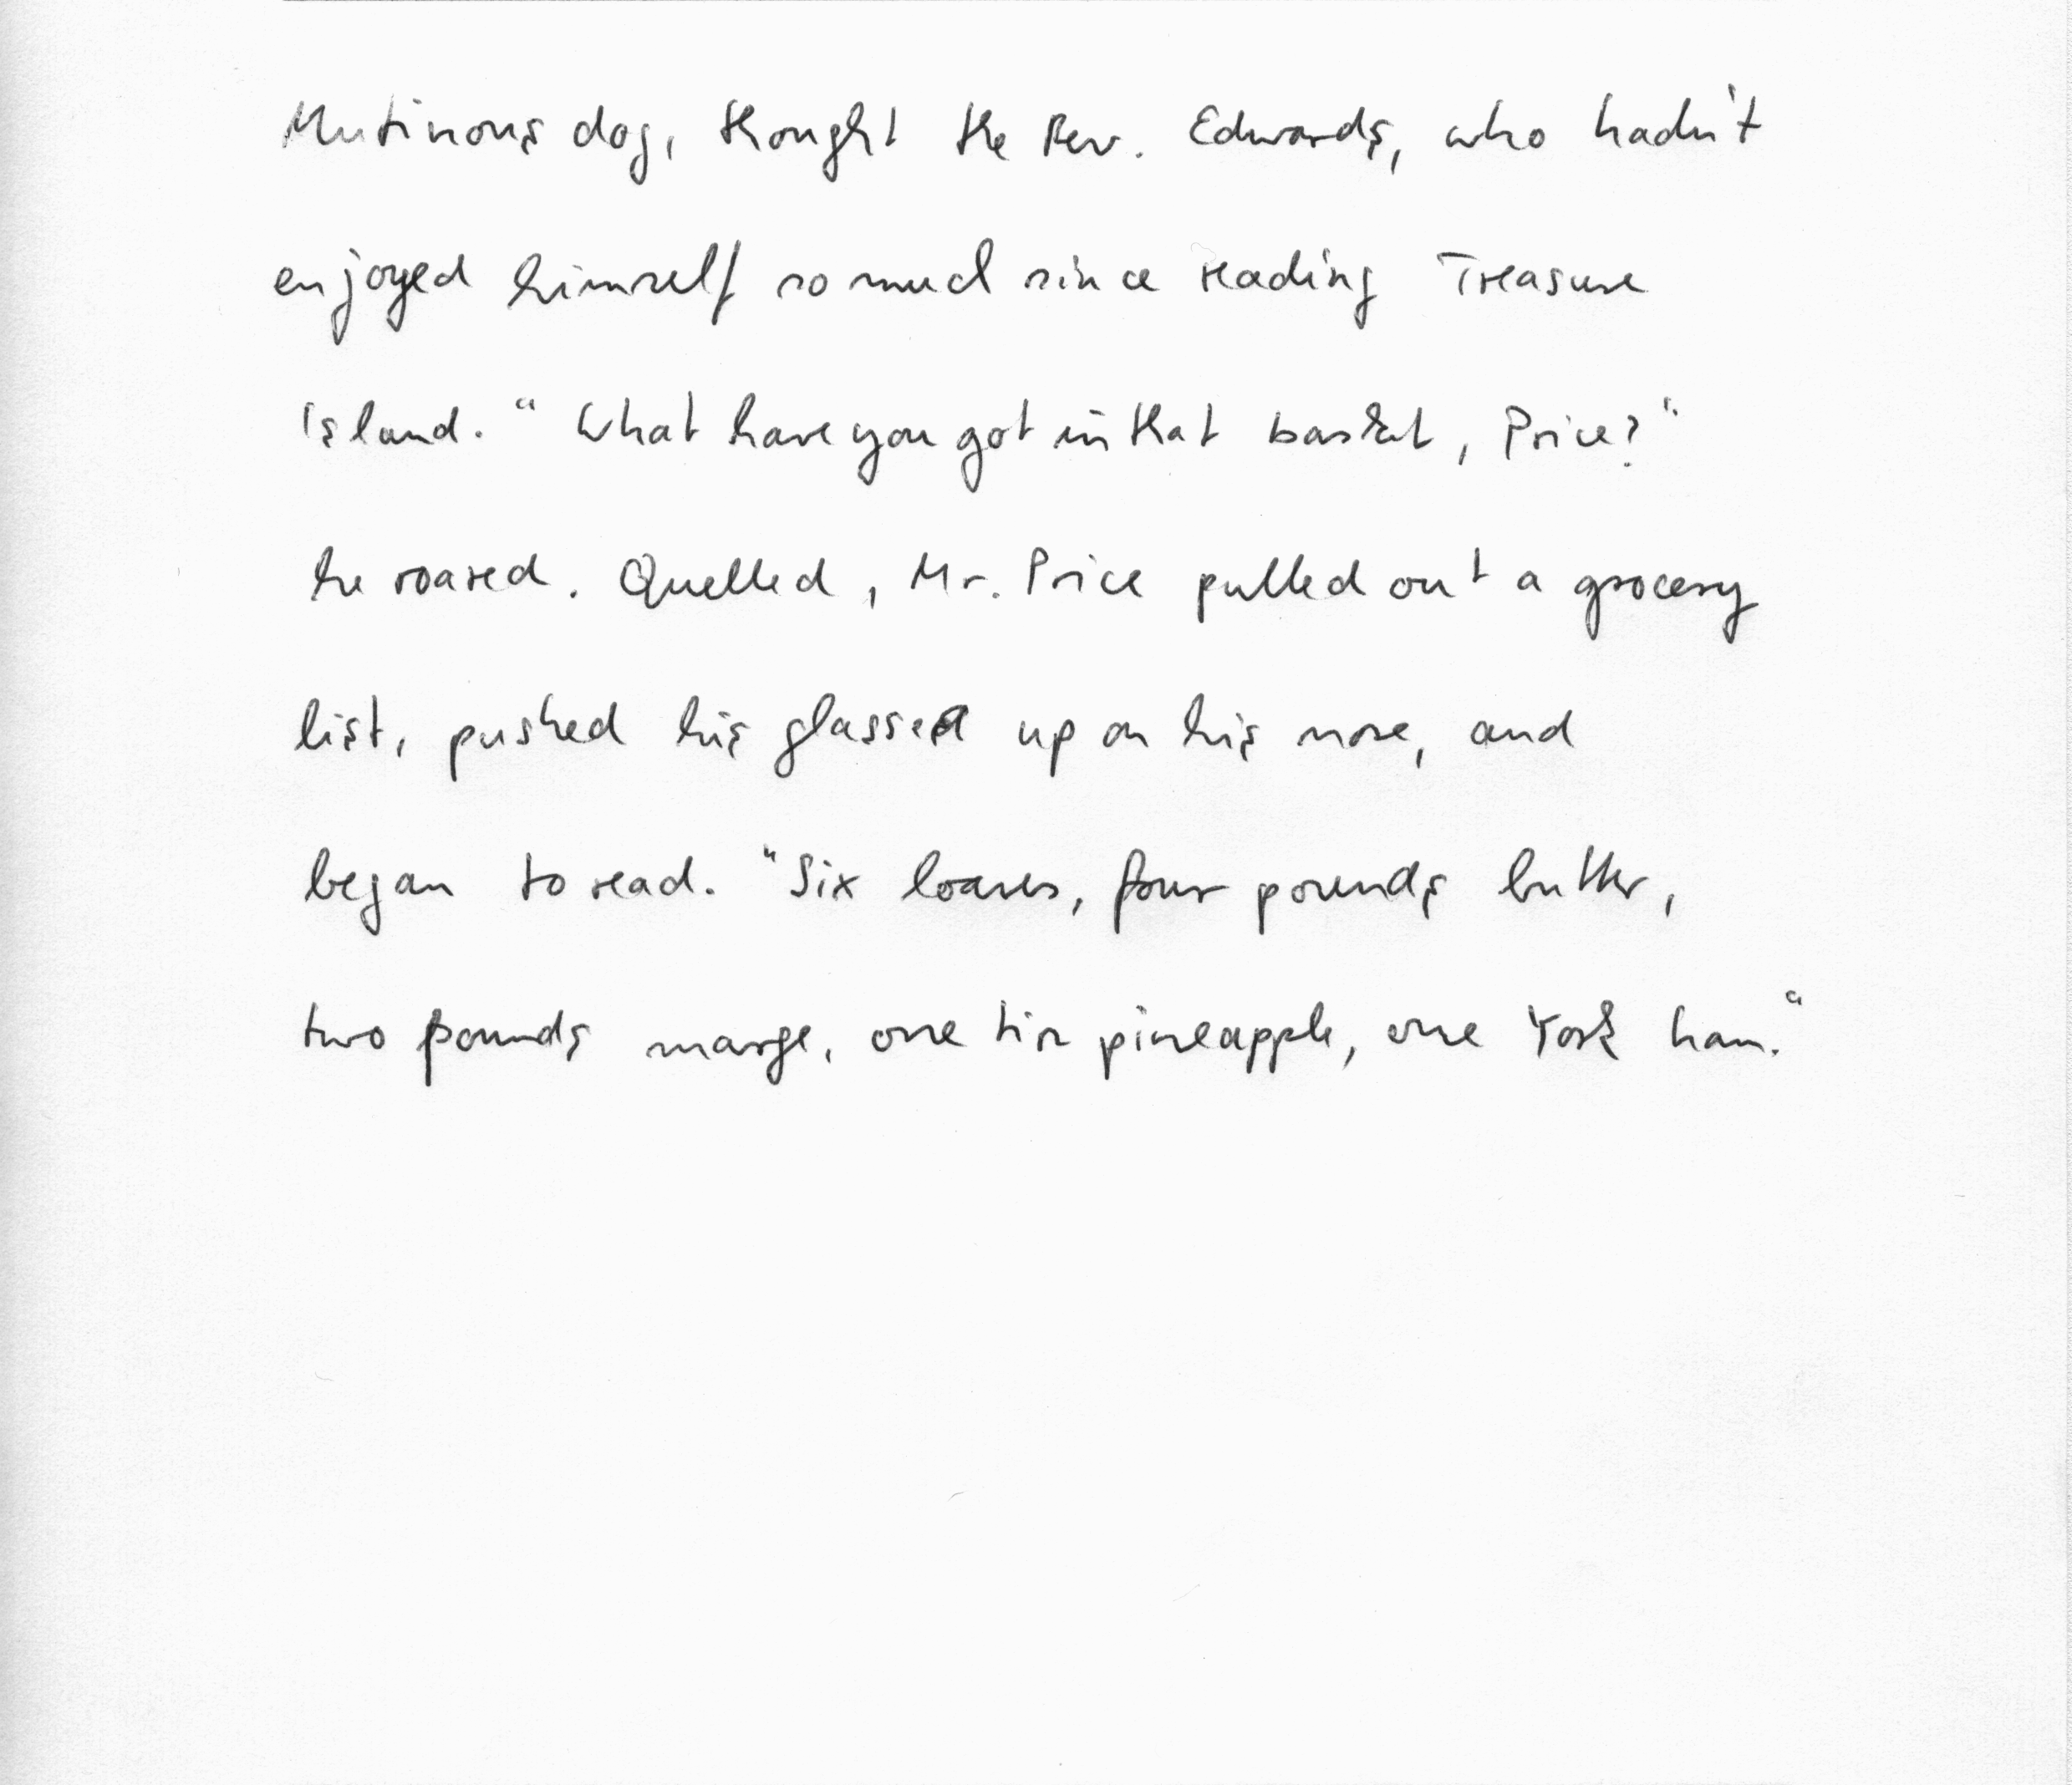 Mutinous dog, thought the Rev. Edwards, who hadn't
enjoyed himself so much since reading Treasure
Island. "What have you got in that basket, Price?"
he roared. Quelled, Mr. Price pulled out a grocery
list, pushed his glasses up on his nose, and
began to read. "Six loaves, four pounds butter,
two pounds marge, one tin pineapple, one York ham."